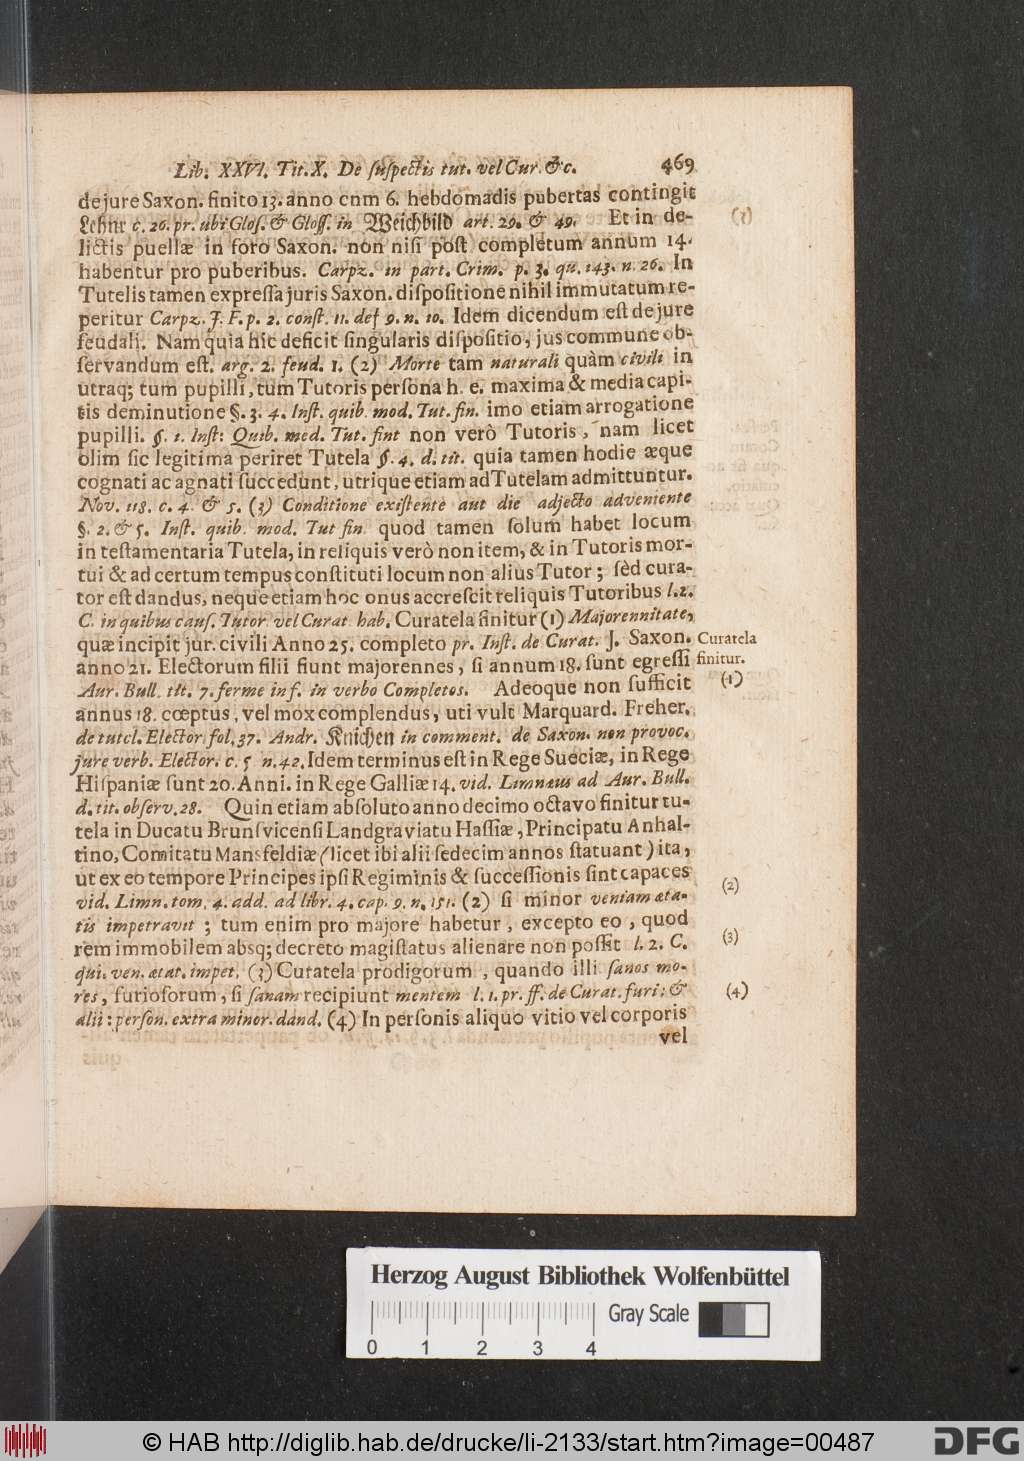 Lib. XXVI. Tit. X. De suspectis tut. vel Cur. &c. 469
de jure Saxon. finito 13. anno cnm 6. hebdomadis pubertas contingit
Lehnr c. 26. pr. ubi Glos. & Gloss. in Weichbild art. 29. & 49. Et in de-
lictis puellæ in foro Saxon. non nisi post completum annum 14.
habentur pro puberibus. Carpz. in part. Crim. p. 3. qu. 143. n. 26. In
Tutelis tamen expressa juris Saxon. dispositione nihil immutatum re-
peritur Carpz. J. F. p. 2. const. 11. def 9. n. 10. Idem dicendum est de jure
feudali. Nam quia hic deficit singularis dispositio, jus commune ob-
servandum est. arg. 2. feud. 1. (2) Morte tam naturali quàm civili in
utraq; tum pupilli, tum Tutoris persona h. e. maxima & media capi-
tis deminutione §. 3. 4. Inst. quib. mod. Tut. fin. imo etiam arrogatione
pupilli. §. 1. Inst: Quib. med. Tut. fint non verò Tutoris, nam licet
olim sic legitima periret Tutela §. 4. d. tit. quia tamen hodie æque
cognati ac agnati succedunt, utrique etiam ad Tutelam admittuntur.
Nov. 118. c. 4. & 5. (3) Conditione existente aut die adjecto adveniente
§. 2. & 5. Inst. quib. mod. Tut fin. quod tamen solum habet locum
in testamentaria Tutela, in reliquis verò non item, & in Tutoris mor-
tui & ad certum tempus constituti locum non alius Tutor; sèd cura-
tor est dandus, neque etiam hoc onus accrescit reliquis Tutoribus l. 2.
C. in quibus caus. Tutor. vel Curat hab. Curatela finitur (1) Majorennitate,
quæ incipit jur. civili Anno 25. completo pr. Inst. de Curat. J. Saxon. Curatela
anno 21. Electorum filii fiunt majorennes, si annum 18. sunt egressi finitur.
Aur. Bull. tit. 7. ferme in f. in verbo Completos. Adeoque non sufficit (1)
annus 18. cœptus, vel mox complendus, uti vult Marquard. Freher.
de tutel. Elector fol. 37. Andr. Knichen in comment. de Saxon. non provoc.
jure verb. Elector. c. 5 n. 42. Idem terminus est in Rege Sueciæ, in Rege
Hispaniæ sunt 20. Anni. in Rege Galliæ 14. vid. Limnæus ad Aur. Bull.
d. tit. observ. 28. Quin etiam absoluto anno decimo octavo finitur tu-
tela in Ducatu Brunsvicensi Landgraviatu Hassiæ, Principatu Anhal-
tino, Comitatu Mansfeldiæ (licet ibi alii sedecim annos statuant) ita,
ut ex eo tempore Principes ipsi Regiminis & successionis sint capaces (2)
vid. Limn. tom. 4. add. ad libr. 4. cap. 9. n. 151. (2) si minor veniam æta-
tis impetravit; tum enim pro majore habetur, excepto eo, quod
rem immobilem absq; decreto magistatus alienare non possit l. 2. C. (3)
qui. ven. ætat. impet. (3) Curatela prodigorum, quando illi sanos mo-
res, furiosorum, si sanam recipiunt mentem l. 1. pr. ff. de Curat. furi: & (4)
alii: person. extra minor. dand. (4) In personis aliquo vitio vel corporis
vel
Herzog August Bibliothek Wolfenbüttel
Gray Scale
0 1 2 3 4
© HAB http://diglib.hab.de/drucke/li-2133/start.htm?image=00487
DFG